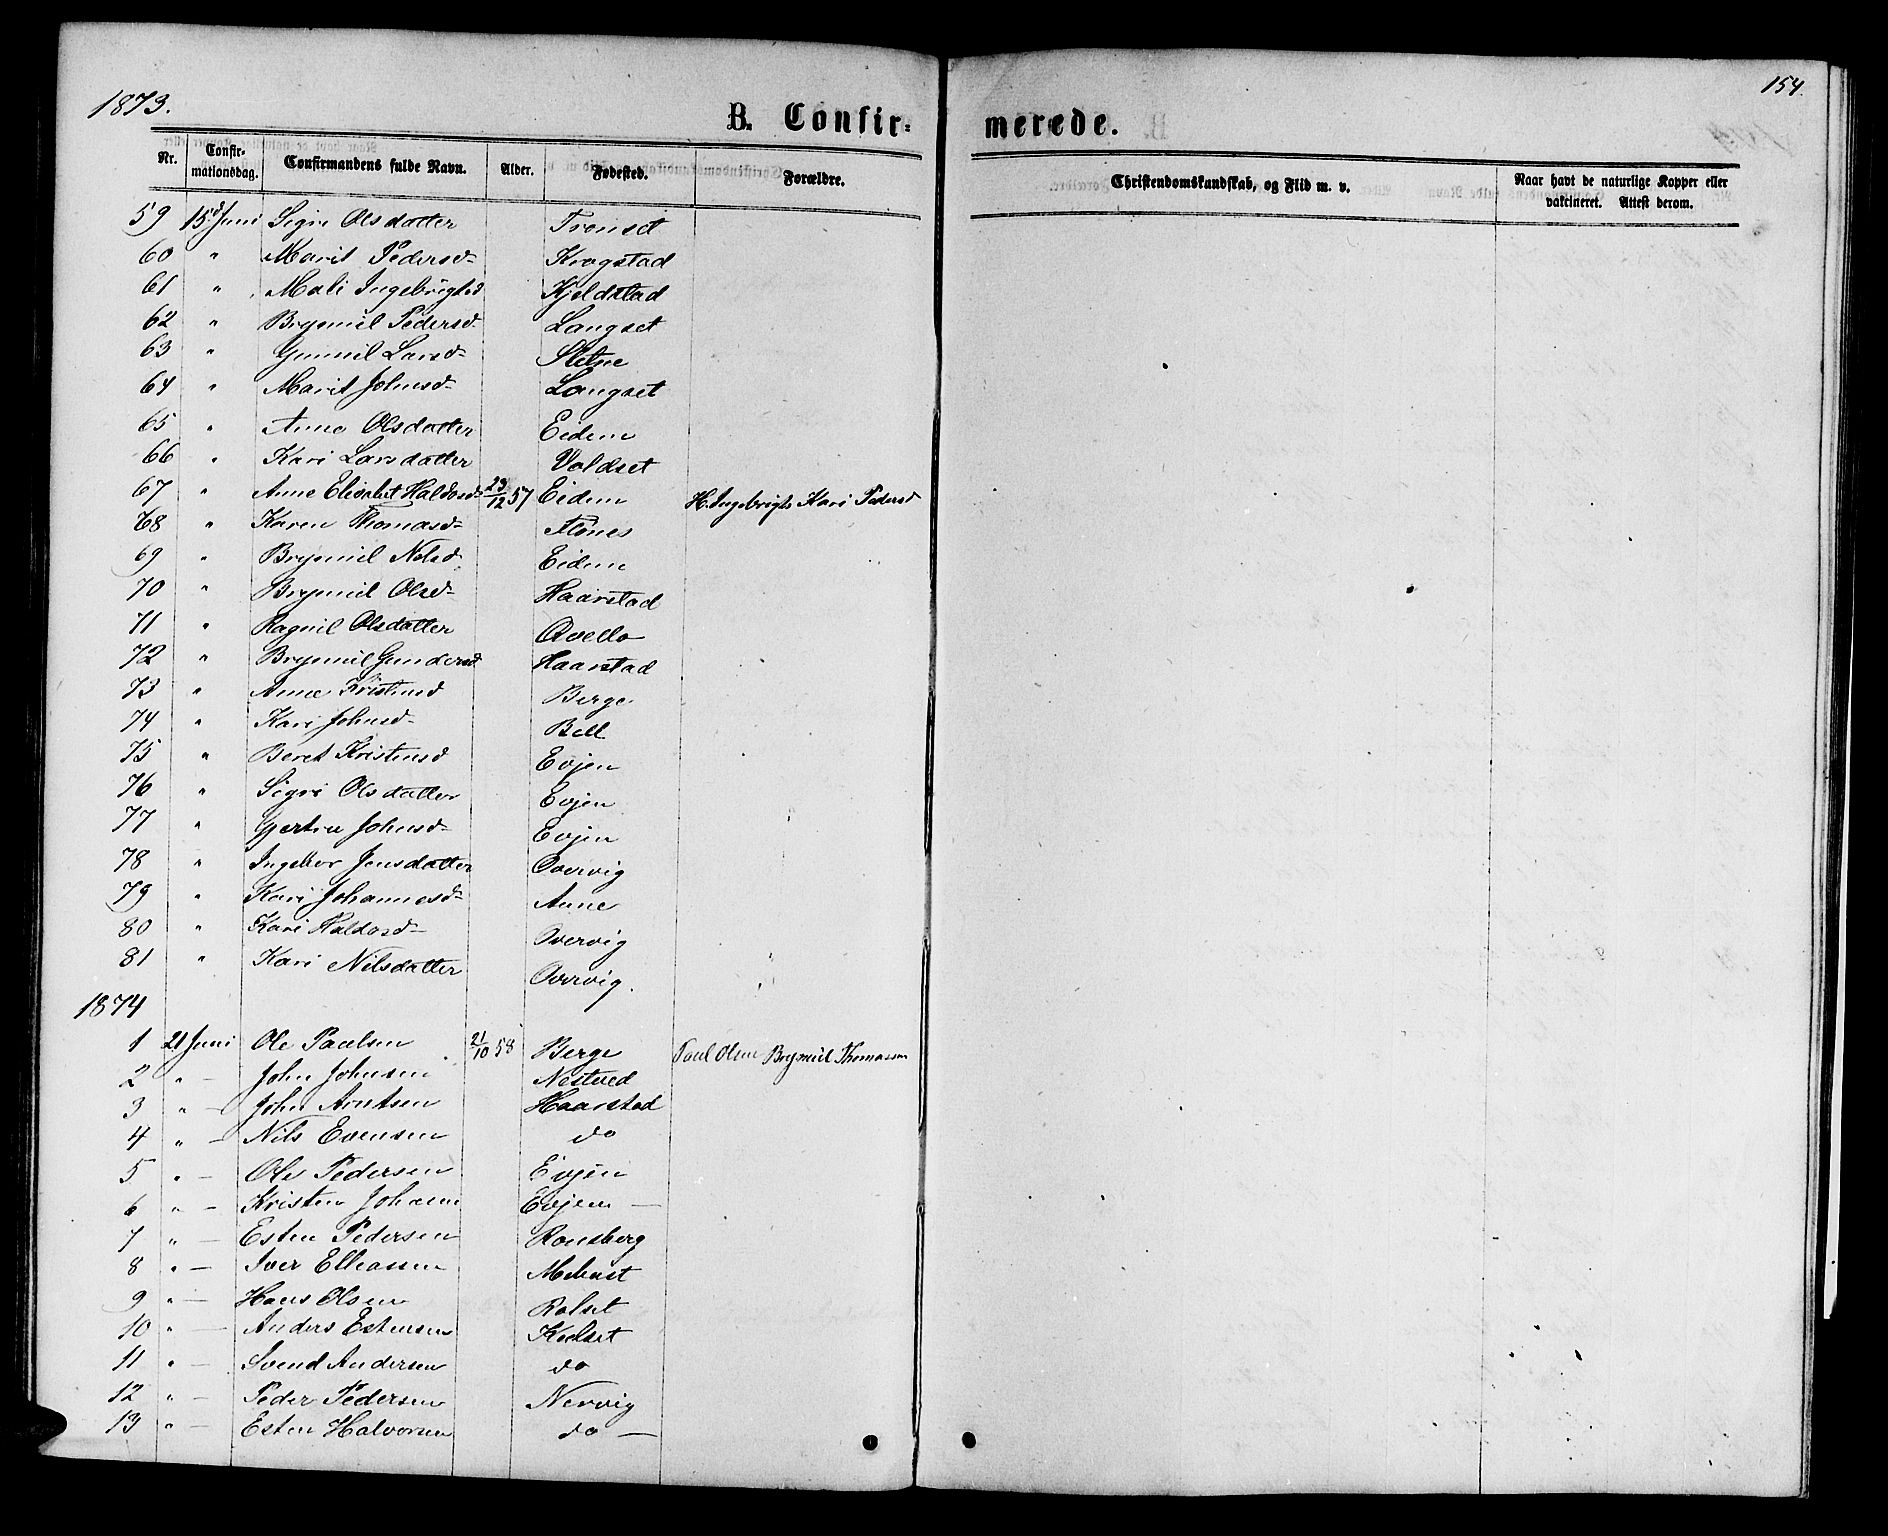 1873.
154
B. Confir-
merede.
Nr. Confirmationsdag. Confirmandens fulde Navn. Alder. Fødested. Forældre. Christendomskundskab, og Flid m. v. Naar havt de naturlige Kopper eller vakcineret. Attest derom.
59 15d Juni Sigri Olsdatter Tronset
60 " Marit Pedersd- Krogstad
61 " Mali Ingebrigtsd Kjeldstad
62 " Brynnil Pedersd- Langset
63 " Gunnil Larsd- Sletne
64 " Marit Johnsd- Langset
65 " Anne Olsdatter Eidem
66 " Kari Larsdatter Voldset
67 " Anne Elisabet Haldosd- 23/12 57 Eidem H. Ingebrigts Kari Pedersd
68 " Karen Thomasd- Flönes
69 " Brynnil Nelsd. Eidem
70 " Brynnil Olsd- Haarstad
71 " Ragnil Olsdatter Qvello
72 " Brynnil Gundersd Haarstad
73 " Anne Kristensd Berge
74 " Kari Johnsd- Bell
75 " Beret Kristensd Evjen
76 " Sigri Olsdatter Evjen
77 " Gjertru Johnsd- Evjen
78 " Ingebor Jensdatter Overvig
79 " Kari Johannesd- Aune
80 " Kari Haldosd- Overvig
81 " Kari Nilsdatter Overvig.
1874
1 21 Juni Ole Paulsen 21/10 58 Berge Paul Olsen Brynnil Thomassen
2 " - John Johnsen Nestved
3 " - John Arntsen Haarstad
4 " - Nils Evensen do
5 " - Ole Pedersen Evjen
6 " - Kristen Johann Evjen -
7 " - Esten Pedersen Ronsberg
8 " - Iver Elleassen Mebust
9 " - Hans Olsen Rolset
10 " - Anders Estensen Kulset
11 " - Svend Andersen do
12 " - Peder Pedersen Nervig
13 " - Esten Halvorsen do -